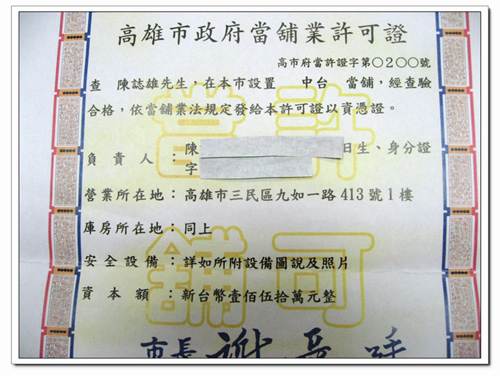 高雄市政府當舖業許可證
高市府當許證字第〇2〇〇號
查 陳誌雄先生，在本市設置 中台 當舖，經查驗
合格，依當舖業法規定發給本許可證以資憑證。
負責人：陳 日生、身分證
字
營業所在地：高雄市三民區九如一路413號1樓
庫房所在地：同上
安全設備：詳如所附設備圖說及照片
資本額：新台幣壹佰伍拾萬元整
市長 謝長
許
當
可
舖